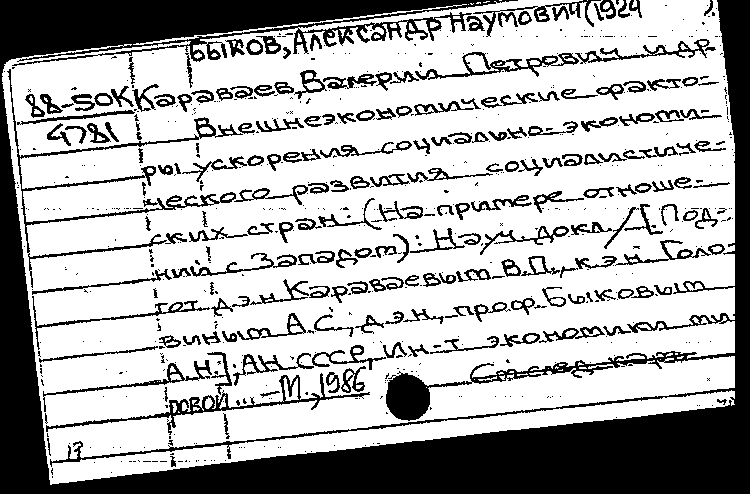 Быков, Александр Наумович (1924 ).
88-50К Караваев, Валерий Петрович и др
4781 Внешнеэкономические факто-
ры ускорения социально-экономи-
ческого развития социалистиче-
ских стран: (На примере отноше-
ний с Западом): Науч. докл. / [Под-
гот. д.э.н. Караваевым В.П., к.э.н. Голо-
виным А.С., д.э.н., проф. Быковым
А.Н.]; АН СССР, Ин-т экономики ми-
ровой ... - М., 1986 См след. карт.